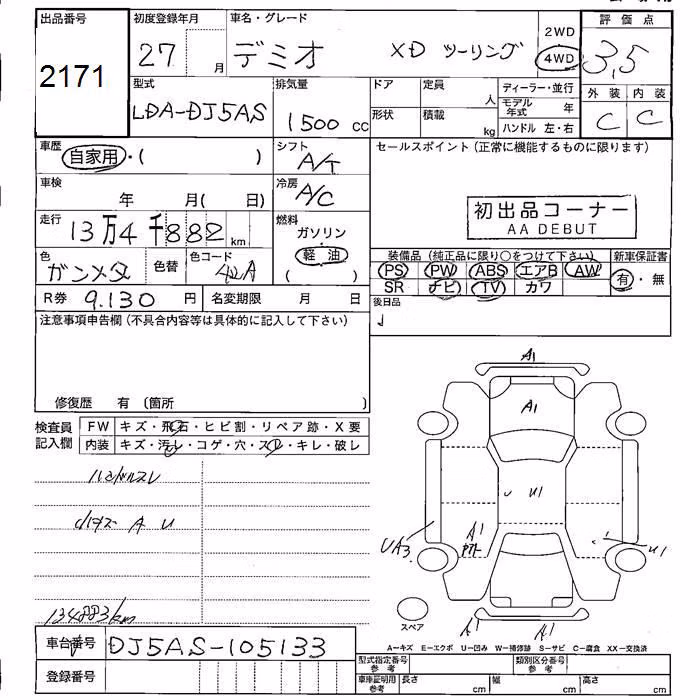 出品番号 初度登録年月 車名・グレード 評価点
2171 27 月 デミオ XD ツーリング 2WD 4WD 3,5
型式 排気量 ドア 定員 人 ディーラー・並行 外装 内装
LDA-DJ5AS 1500 cc 形状 積載 kg モデル年式 年 C C
ハンドル 左・右
車歴 自家用・( ) シフト A/T セールスポイント (正常に機能するものに限ります)
車検 年 月( 日) 冷房 A/C
初出品コーナー
AA DEBUT
走行 13万4千882 km 燃料 ガソリン
軽油
( )
色 ガンメタ 色替 色コード 42A
装備品 (純正品に限り○をつけて下さい) 新車保証書
PS PW ABS エアB AW 有・無
SR ナビ TV カワ
R券 9.130 円 名変期限 月 日 後日品
注意事項申告欄 (不具合内容等は具体的に記入して下さい)
修復歴 有 (箇所 )
検査員記入欄 FW キズ・飛石・ヒビ割・リペア跡・X要
内装 キズ・汚レ・コゲ・穴・スレ・キレ・破レ
ハンドルスレ
A U
134883km
A1
A1
U1
A1
UA3
U1
A1
A1
スペア
A-キズ E-エクボ U-凹み W-補修跡 S-サビ C-腐食 XX-交換済
車台番号 DJ5AS-105133
型式指定番号 参考 類別区分番号 参考
登録番号
車庫証明用 参考 長さ cm 幅 cm 高さ cm